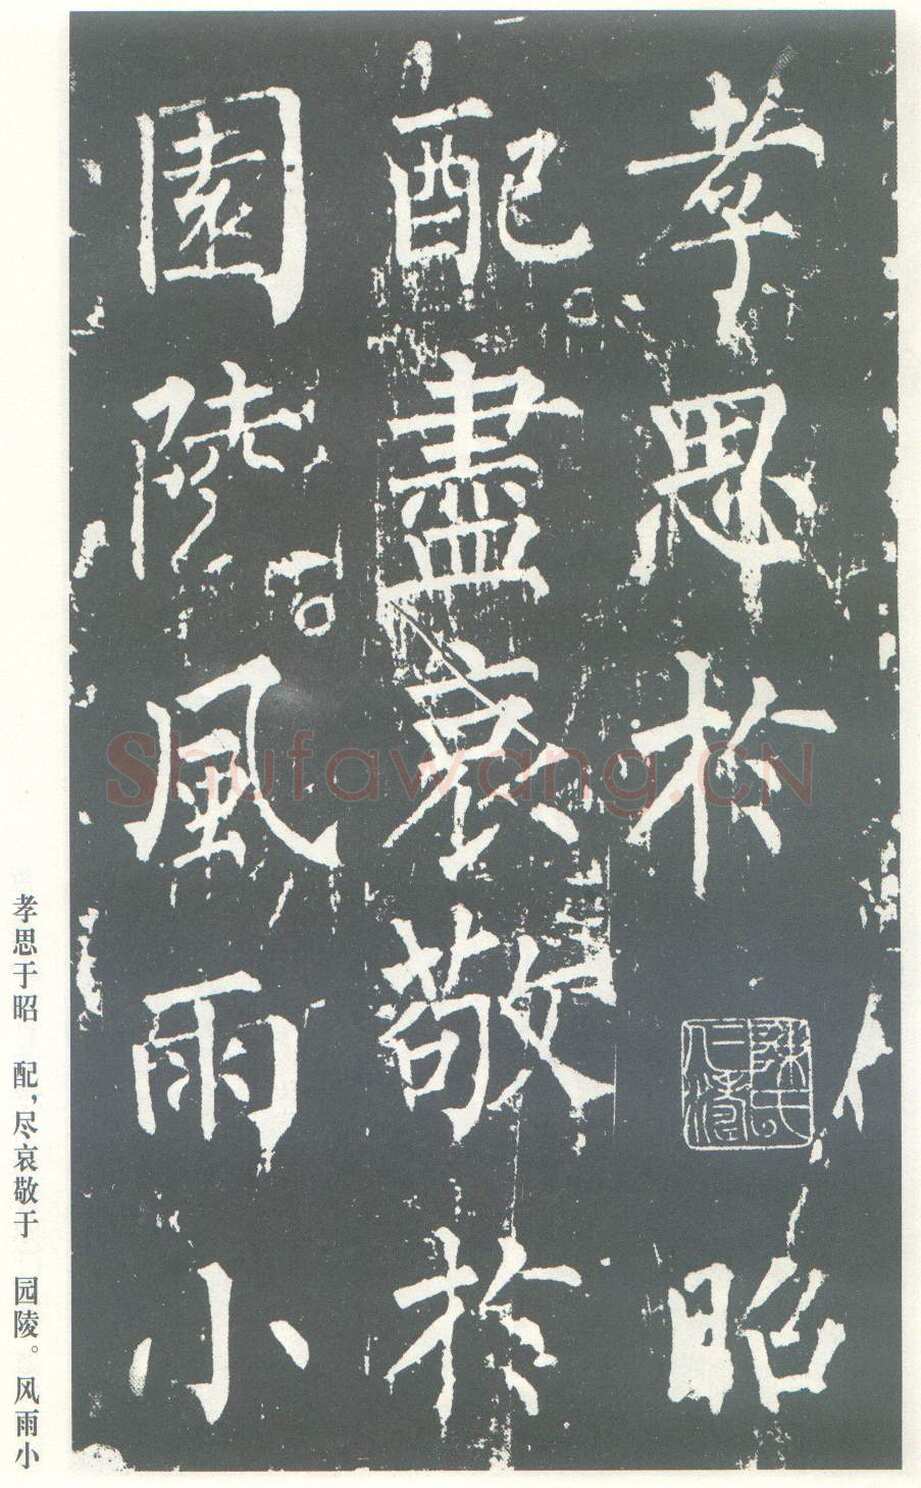 孝思於昭
配盡哀敬於
園陵風雨小
孝思于昭 配，尽哀敬于 园陵。风雨小
Shufawang.CN